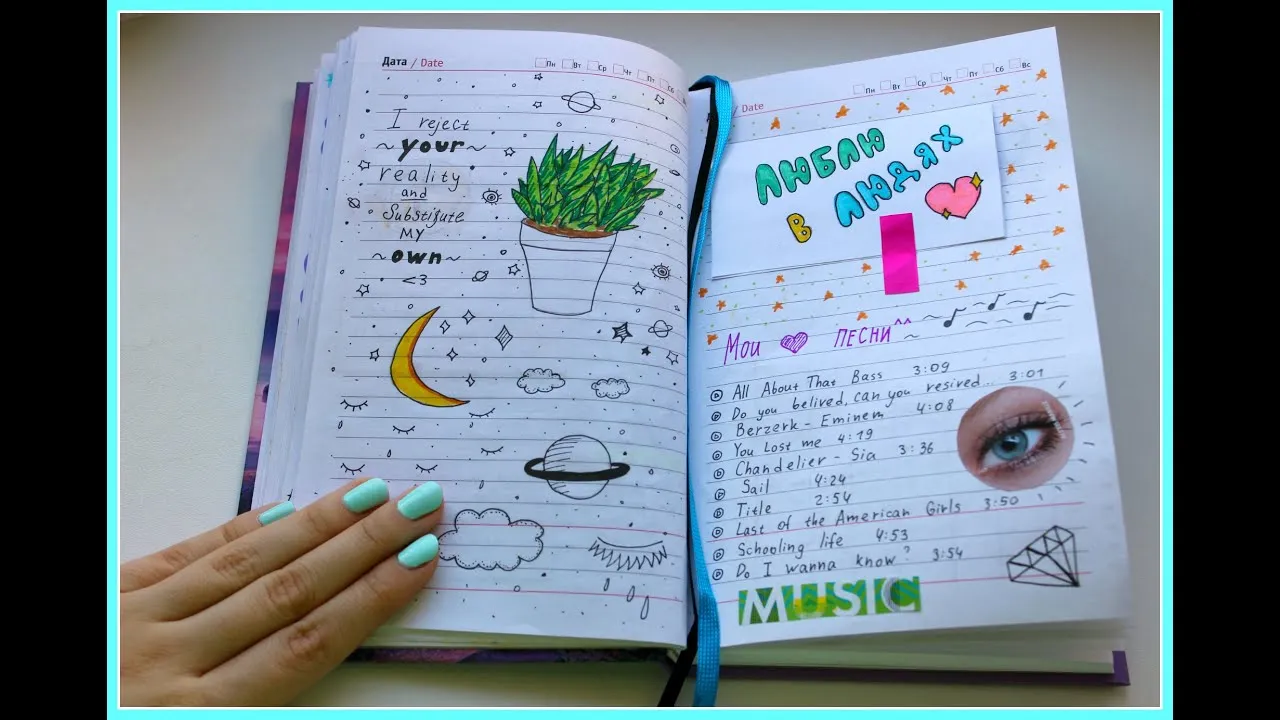 Дата / Date
Пн Вт Ср Чт Пт Сб
I reject
~ your ~
reality
and
Substitute
MY
~ own ~
<3
/ Date
Пн Вт Ср Чт Пт Сб Вс
ЛЮБЛЮ
В ЛЮДЯХ
Мои ПЕСНИ ^^
All About That Bass 3:09
Do you belived, can you resired... 3:01
Berzerk - Eminem 4:08
You Lost me 4:19
Chandelier - Sia 3:36
Sail 4:24
Title 2:54
Last of the American Girls 3:50
Schooling life 4:53
Do I wanna know? 3:54
MUSIC